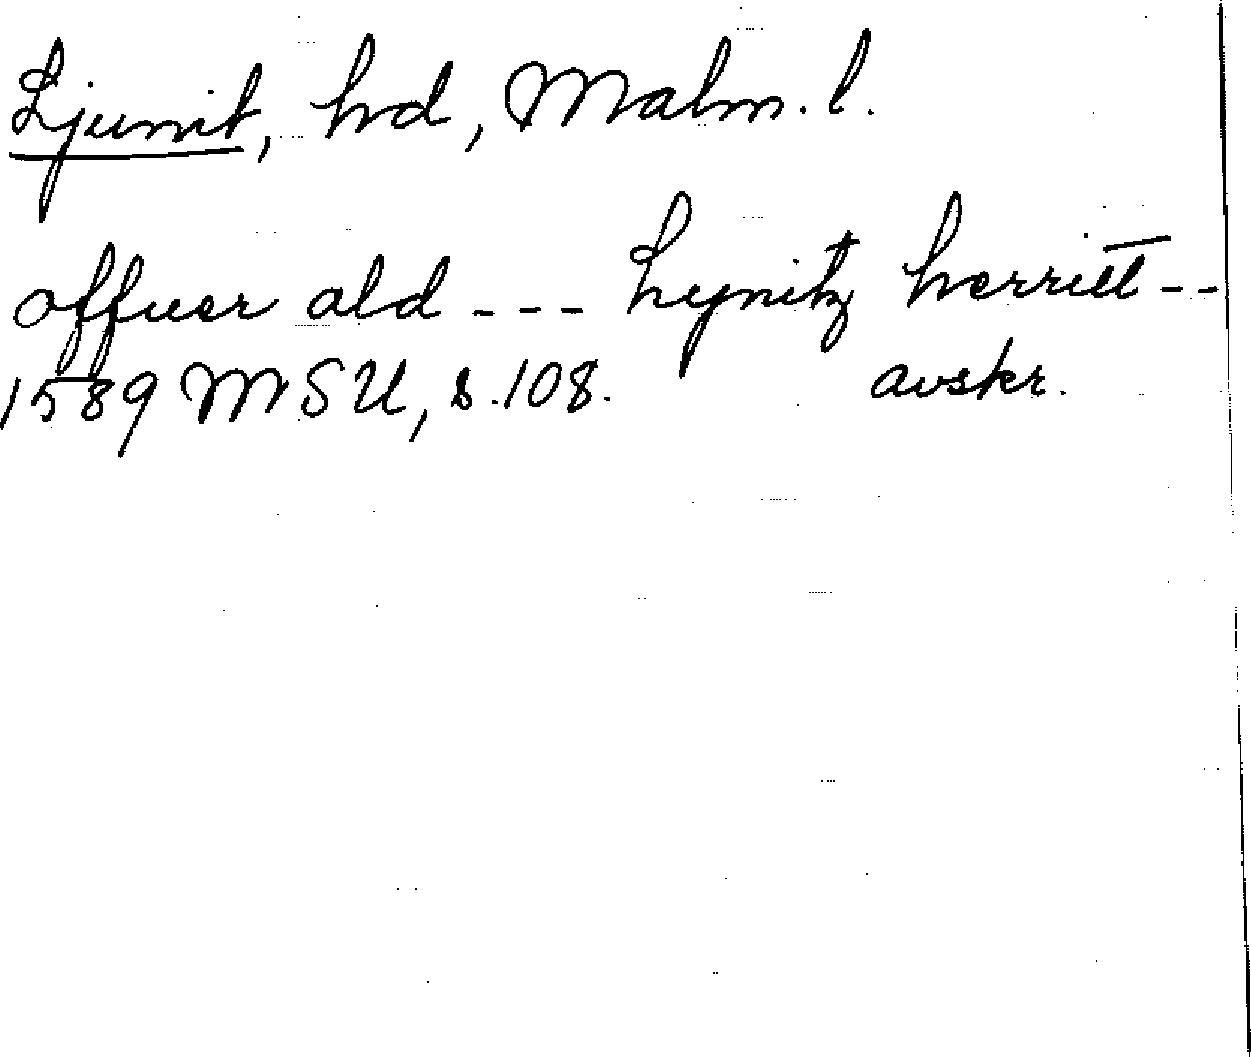 Ljunit, hrd, Malm. l.
offuer ald --- Lynitz herritt--
1589 MSU, s. 108. avskr.